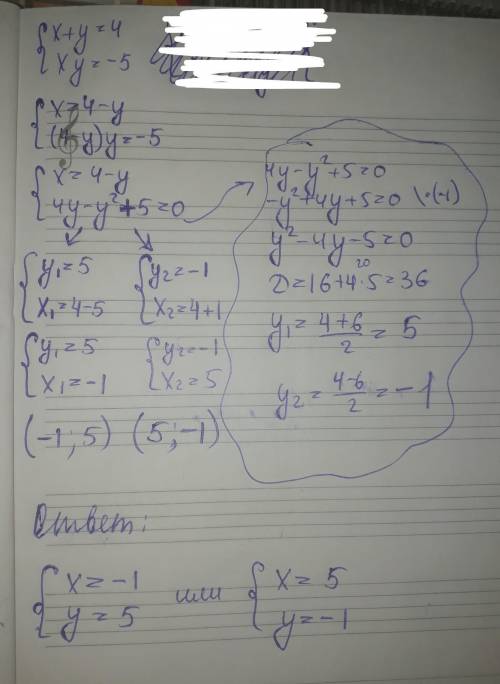 x+y=4
xy=-5
x=4-y
(4-y)y=-5
x=4-y
4y-y²+5=0
4y-y²+5=0
-y²+4y+5=0 \·(-1)
y²-4y-5=0
20
D=16+4·5=36
y₁=4+6/2=5
y₂=4-6/2=-1
y₁=5
x₁=4-5
y₂=-1
x₂=4+1
y₁=5
x₁=-1
y₂=-1
x₂=5
(-1;5) (5;-1)
Ответ:
x=-1
y=5
или
x=5
y=-1